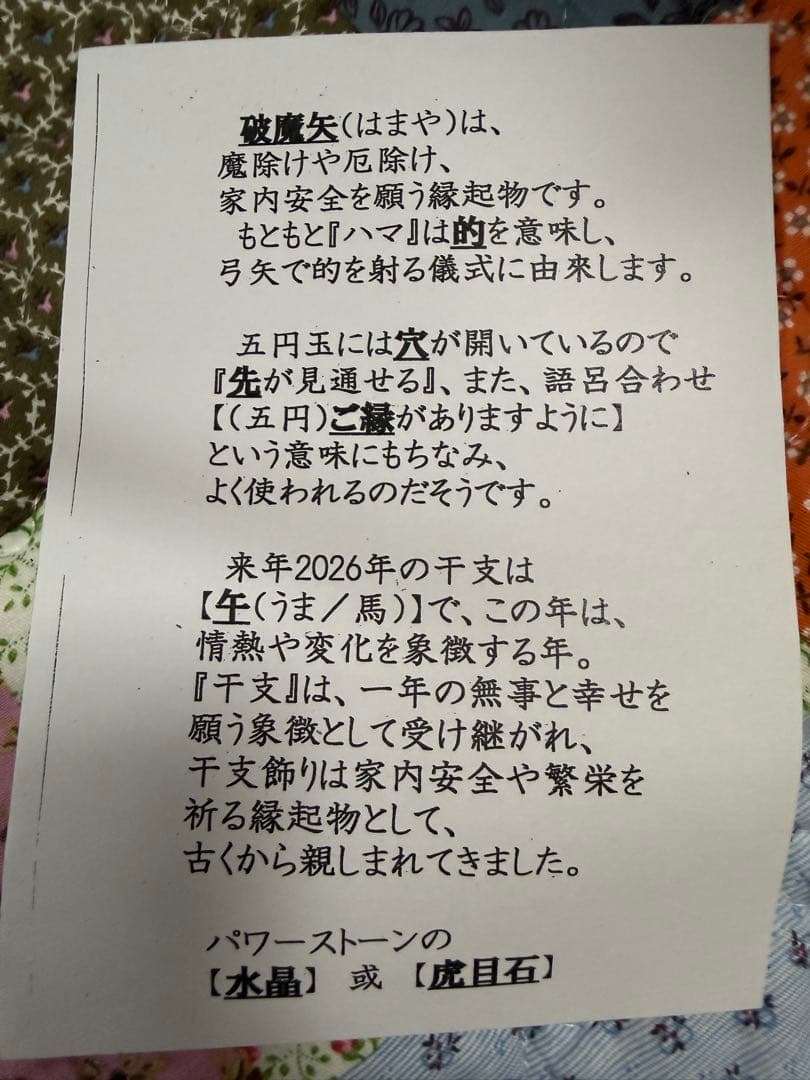 破魔矢(はまや)は、
魔除けや厄除け、
家内安全を願う縁起物です。
もともと『ハマ』は的を意味し、
弓矢で的を射る儀式に由来します。
五円玉には穴が開いているので
『先が見通せる』、また、語呂合わせ
【(五円)ご縁がありますように】
という意味にもちなみ、
よく使われるのだそうです。
来年2026年の干支は
【午(うま／馬)】で、この年は、
情熱や変化を象徴する年。
『干支』は、一年の無事と幸せを
願う象徴として受け継がれ、
干支飾りは家内安全や繁栄を
祈る縁起物として、
古くから親しまれてきました。
パワーストーンの
【水晶】 或 【虎目石】